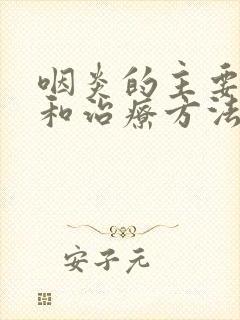 咽炎的主要
和治疗方法
安子元